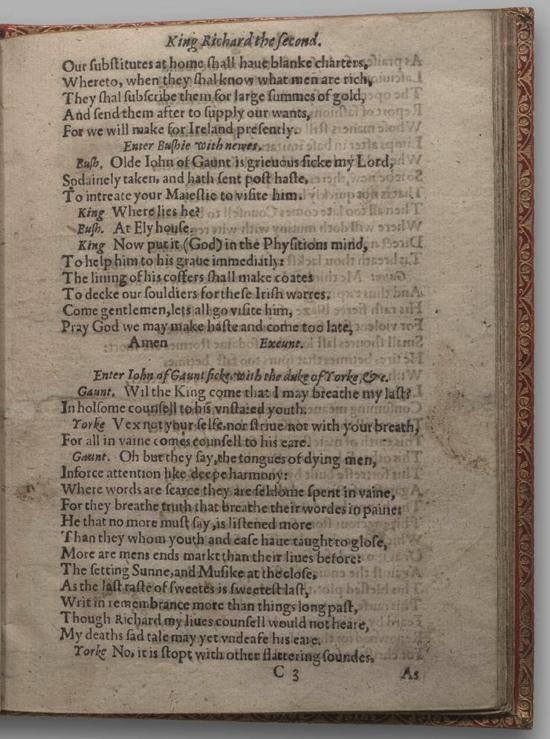 King Richard the ſecond.
Our ſubſtitutes at home ſhall haue blanke charters,
Whereto, when they ſhal know what men are rich,
They ſhal ſubſcribe them for large ſummes of gold,
And ſend them after to ſupply our wants,
For we will make for Ireland preſently.
Enter Buſhie with newes.
Buſh. Olde Iohn of Gaunt is grieuous ſicke my Lord,
Sodainely taken, and hath ſent poſt haſte,
To intreate your Maieſtie to viſite him.
King Where lies he?
Buſh. At Ely houſe.
King Now put it (God) in the Phyſitions mind,
To help him to his graue immediatly:
The lining of his coffers ſhall make coates
To decke our ſouldiers for theſe Iriſh warres.
Come gentlemen, lets all go viſite him,
Pray God we may make haſte and come too late,
Amen Exeunt.
Enter Iohn of Gaunt ſicke, with the duke of Yorke, &c.
Gaunt. Wil the King come that I may breathe my laſt?
In holſome counſell to his vnſtaied youth.
Yorke Vex not your ſelfe, nor ſtriue not with your breath,
For all in vaine comes counſell to his eare.
Gaunt. Oh but they ſay, the tongues of dying men,
Inforce attention like deepe harmony:
Where words are ſcarce they are ſeldome ſpent in vaine,
For they breathe truth that breathe their wordes in paine:
He that no more muſt ſay, is liſtened more
Than they whom youth and eaſe haue taught to gloſe,
More are mens ends markt than their liues before:
The ſetting Sunne, and Muſike at the cloſe,
As the laſt taſte of ſweetes is ſweeteſt laſt,
Writ in remembrance more than things long paſt,
Though Richard my liues counſell would not heare,
My deaths ſad tale may yet vndeafe his eare.
Yorke No, it is ſtopt with other flattering ſoundes,
C 3 As